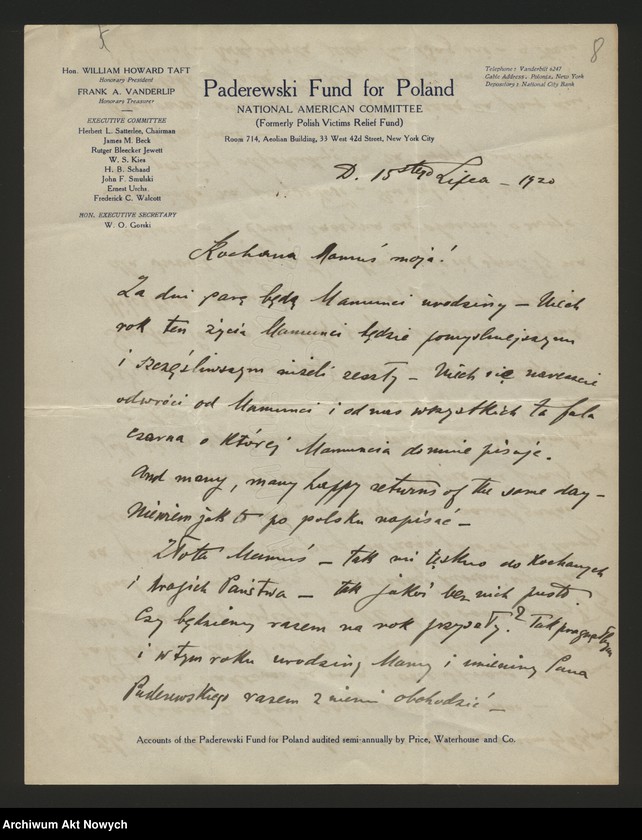 8
Hon. WILLIAM HOWARD TAFT
Honorary President
FRANK A. VANDERLIP
Honorary Treasurer
EXECUTIVE COMMITTEE
Herbert L. Satterlee, Chairman
James M. Beck
Rutger Bleecker Jewett
W. S. Kies
H. B. Schaad
John F. Smulski
Ernest Urchs
Frederick C. Walcott
HON. EXECUTIVE SECRETARY
W. O. Gorski
Paderewski Fund for Poland
NATIONAL AMERICAN COMMITTEE
(Formerly Polish Victims Relief Fund)
Room 714, Aeolian Building, 33 West 42d Street, New York City
Telephone: Vanderbilt 6247
Cable Address: Polonia, New York
Depository: National City Bank
D. 15stego Lipca - 1920
Kochana Mamuś moja!
Za dni parę będą Mamunci urodziny - Niech
rok ten życia Mamunci będzie pomyślniejszym
i szczęśliwszym niżeli reszty - Niech się nareszcie
odwróci od Mamunci i od nas wszystkich ta fala
czarna o której Mamuncia do mnie pisuje.
And many, many happy returns of the same day -
Niewiem jak to po polsku napisać -
Złota Mamuś - tak mi tęskno do Kochanych
i drogich Państwa - tak jakoś bez nich pusto.
Czy będziemy razem na rok przyszły? Tak
i w tym roku urodziny Mamy i imieniny Pana
Paderewskiego razem z niemi obchodzić -
Accounts of the Paderewski Fund for Poland audited semi-annually by Price, Waterhouse and Co.
Archiwum Akt Nowych